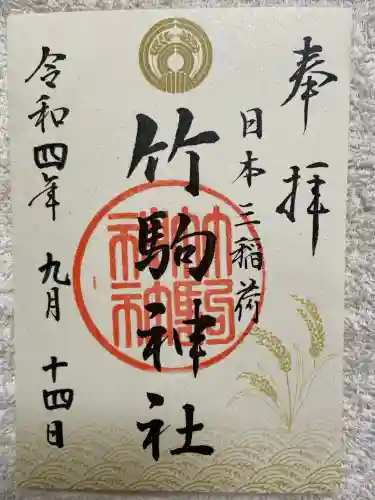 奉拝
日本三稲荷
竹駒神社
竹駒神社
令和四年 九月 十四日